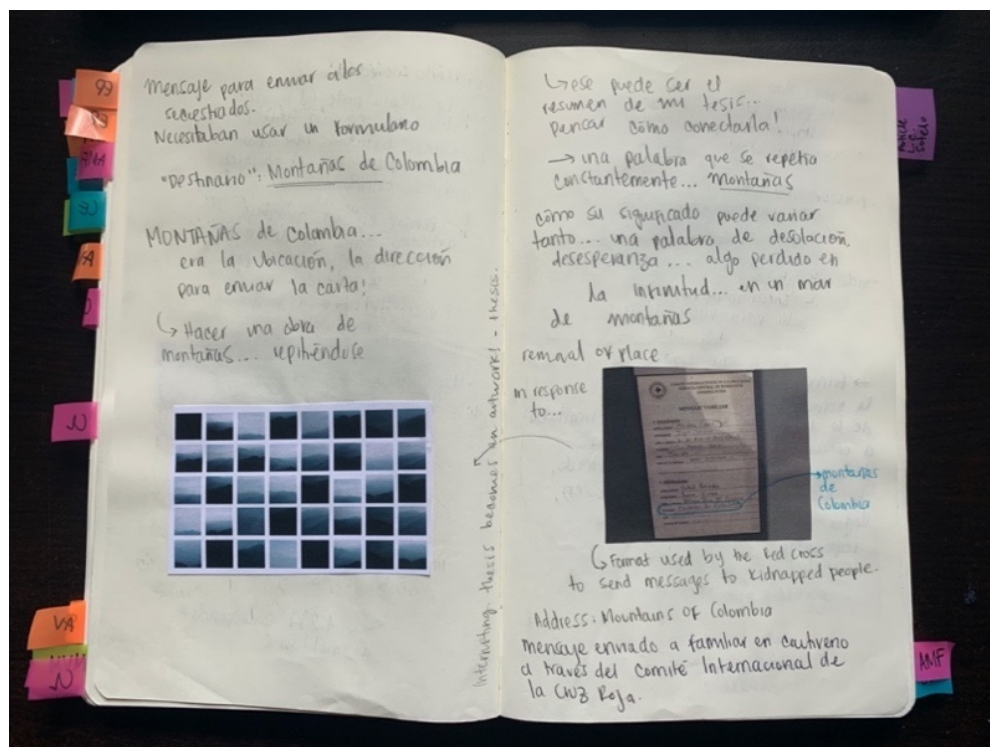 mensaje para enviar a los
secuestrados.
Necesitaban usar un formulario
"Destinario": Montañas de Colombia
MONTAÑAS de Colombia...
era la ubicación, la dirección
para enviar la carta!
↳ Hacer una obra de
montañas... repitiéndose
Interesting. thesis becomes an artwork! - thesis.
↳ ese puede ser el
resumen de mi tesis...
pensar cómo conectarla!
→ una palabra que se repetía
constantemente... montañas
cómo su significado puede variar
tanto... una palabra de desolación,
desesperanza... algo perdido en
la infinitud... en un mar
de montañas
removal of place
in response
to...
MENSAJE FAMILIAR
montañas
de
Colombia
↳ Format used by the Red Cross
to send messages to kidnapped people.
Address: Mountains of Colombia
mensaje enviado a familiar en cautiverio
a través del Comité Internacional de
la Cruz Roja.
VA
AMF